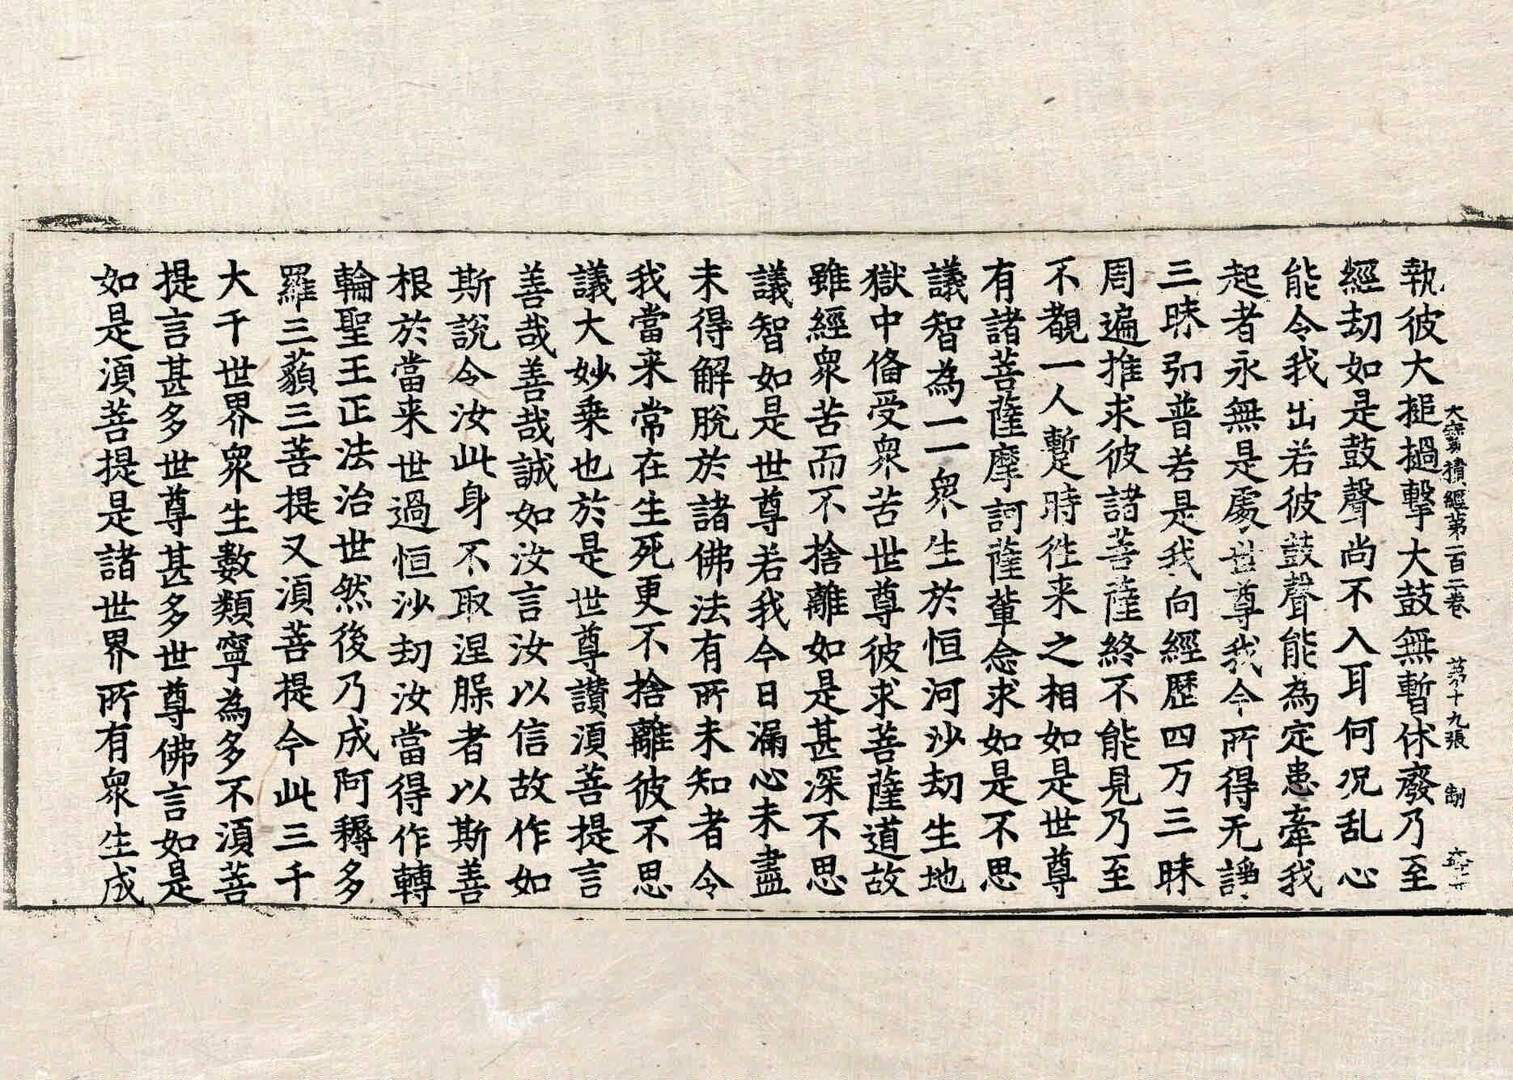 大寳積經第一百二卷 第十九張 制
執彼大搥撾擊大鼓無暫休廢乃至
經劫如是鼓聲尚不入耳何況乱心
能令我出若彼鼓聲能為定患牽我
起者永無是處世尊我今所得无諍
三昧如普若是我向經歷四万三昧
周遍推求彼諸菩薩終不能見乃至
不覩一人暫時往来之相如是世尊
有諸菩薩摩訶薩輩念求如是不思
議智為一一衆生於恒河沙劫生地
獄中俻受衆苦世尊彼求菩薩道故
雖經衆苦而不捨離如是甚深不思
議智如是世尊若我今日漏心未盡
未得解脫於諸佛法有所未知者令
我當来常在生死更不捨離彼不思
議大妙乗也於是世尊讃湏菩提言
善哉善哉誠如汝言汝以信故作如
斯說令汝此身不取涅槃者以斯善
根於當来世過恒沙劫汝當得作轉
輪聖王正法治世然後乃成阿耨多
羅三藐三菩提又湏菩提今此三千
大千世界衆生數類寧為多不湏菩
提言甚多世尊甚多世尊佛言如是
如是湏菩提是諸世界所有衆生成